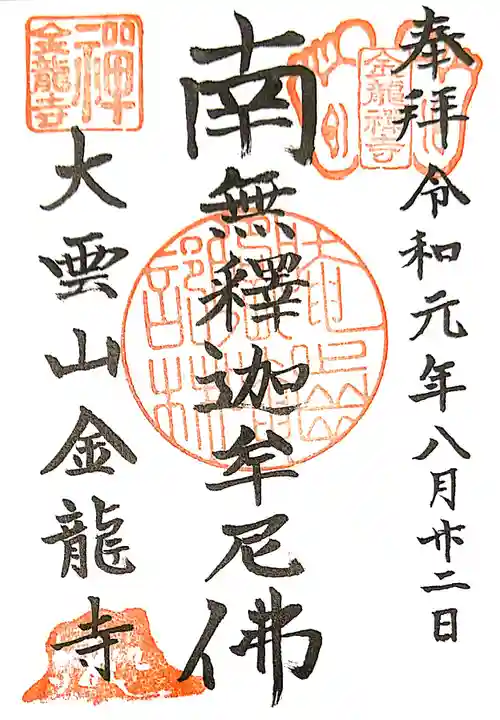 奉拝 令和元年八月廿二日
金龍禅寺
南無釋迦牟尼佛
大雲山金龍寺
禅
金龍寺